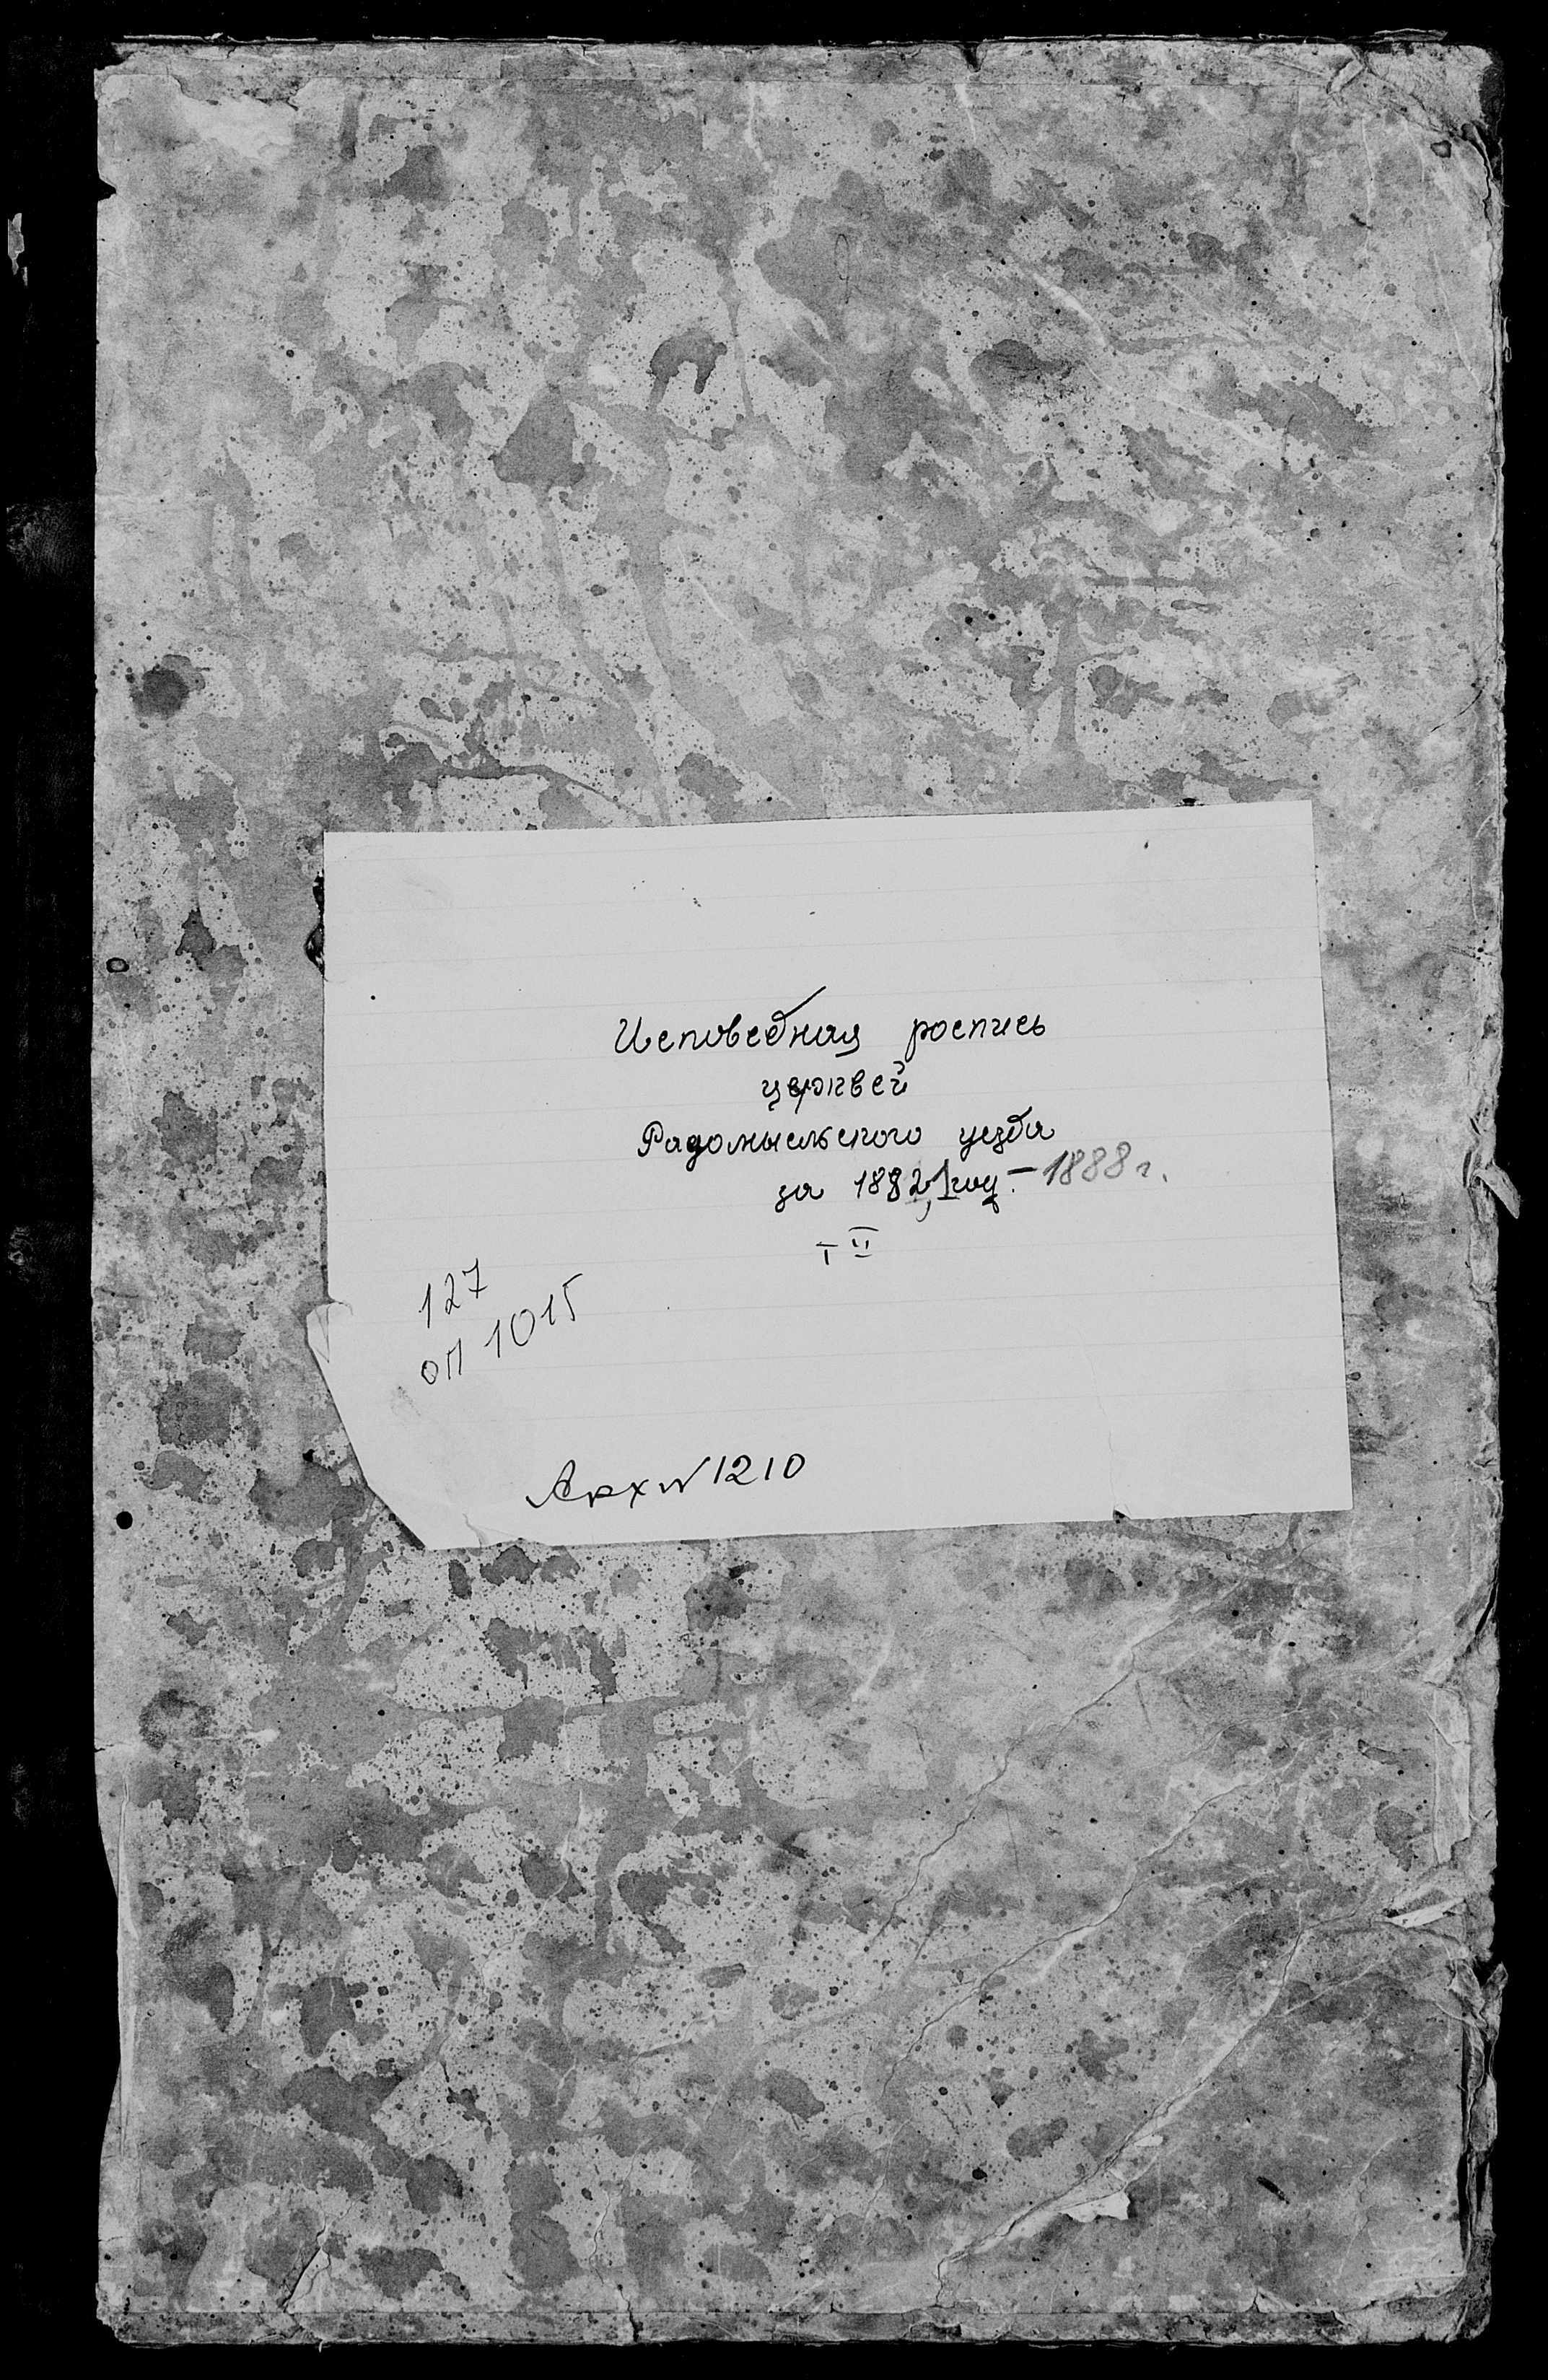 Исповедная роспись
церквей
Радомысльского уезда
за 1882 год. – 1888 г.
Т II
127
оп 1015
Арх № 1210